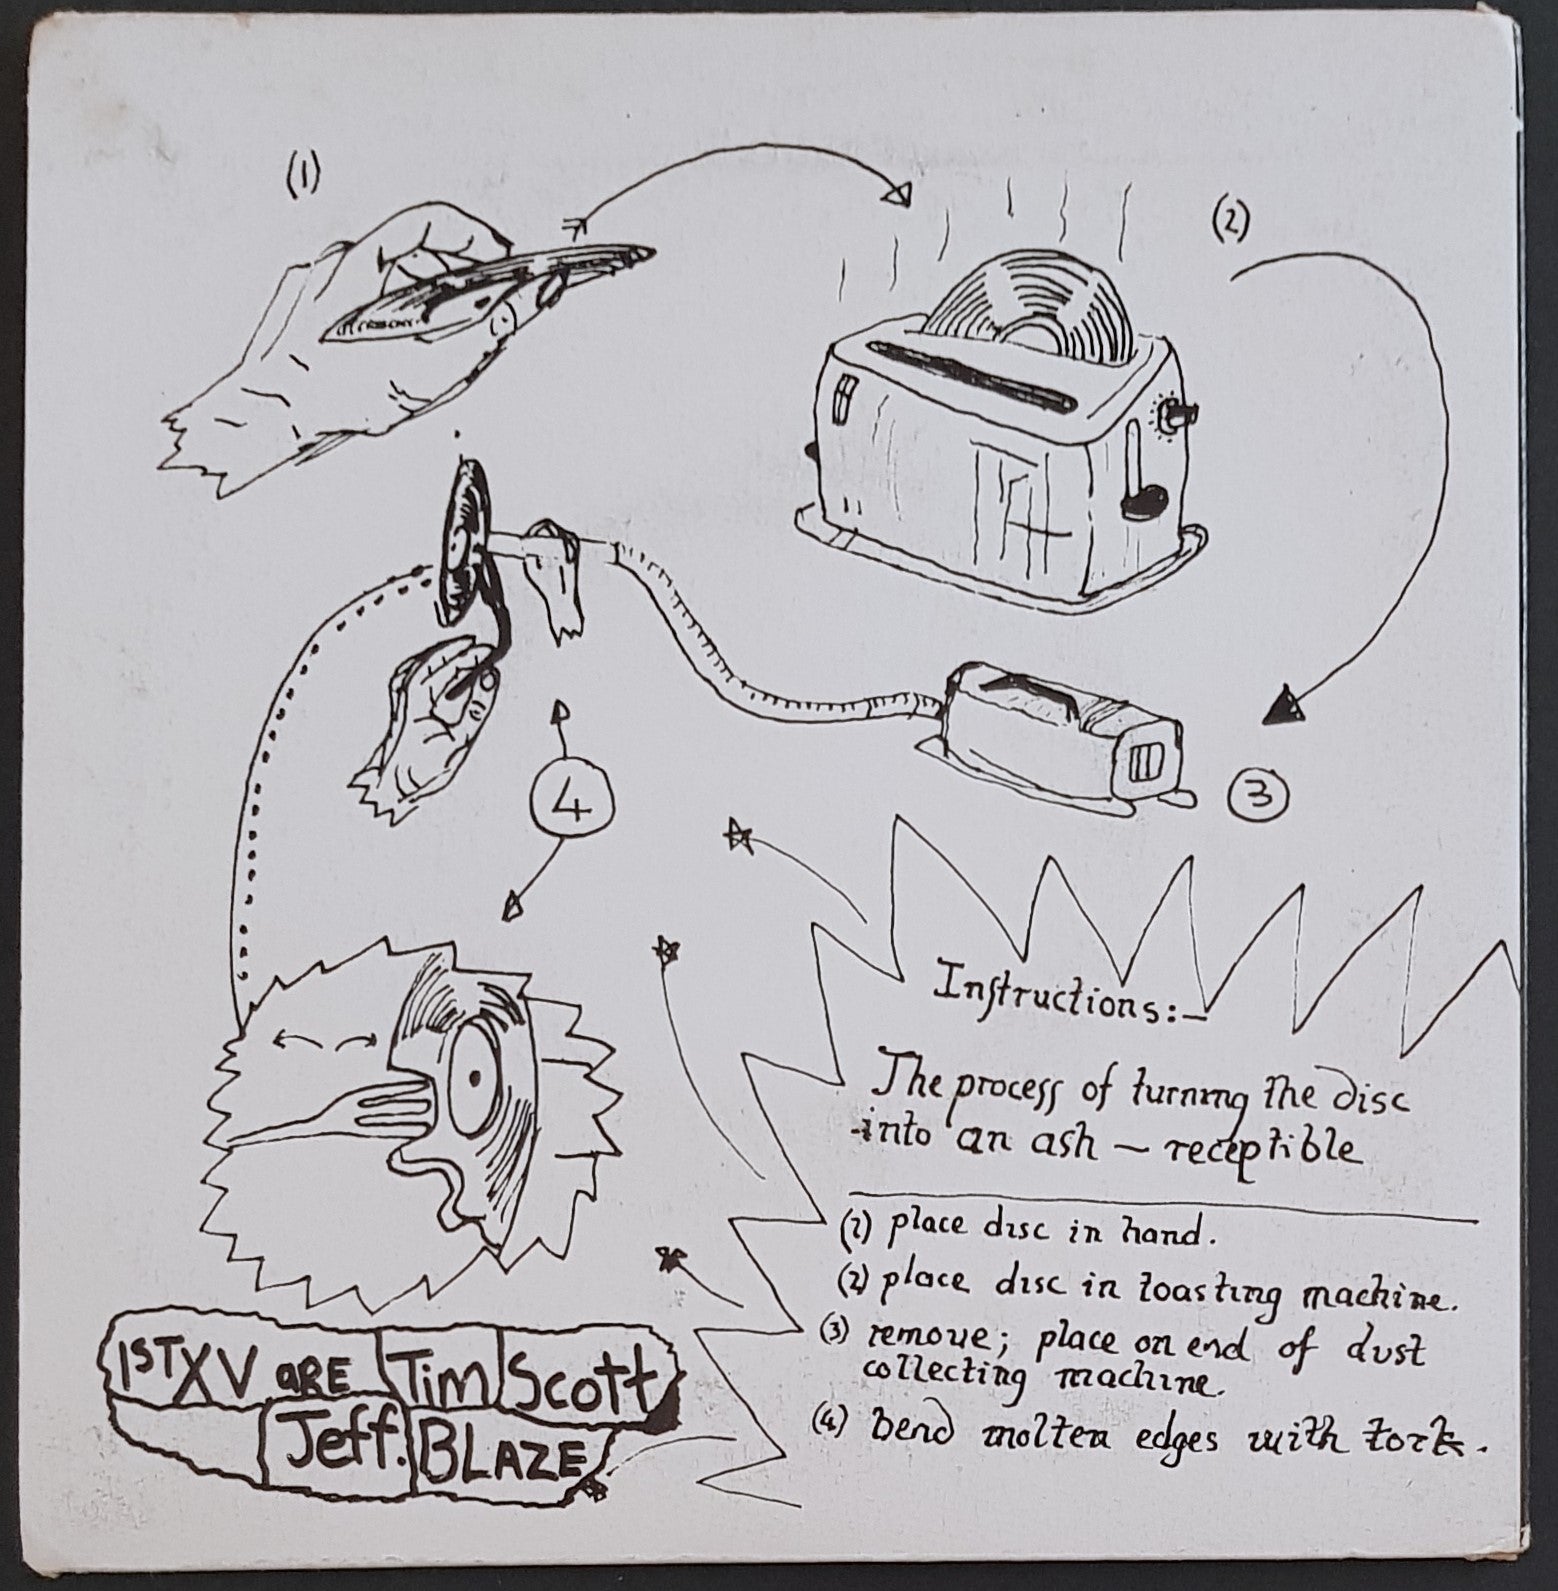 (1)
(2)
4
3
Instructions:-
The process of turning the disc
into an ash - receptible
(1) place disc in hand.
(2) place disc in toasting machine.
(3) remove; place on end of dust
collecting machine.
(4) bend molten edges with fork.
1ST XV ARE Tim Scott
Jeff. BLAZE